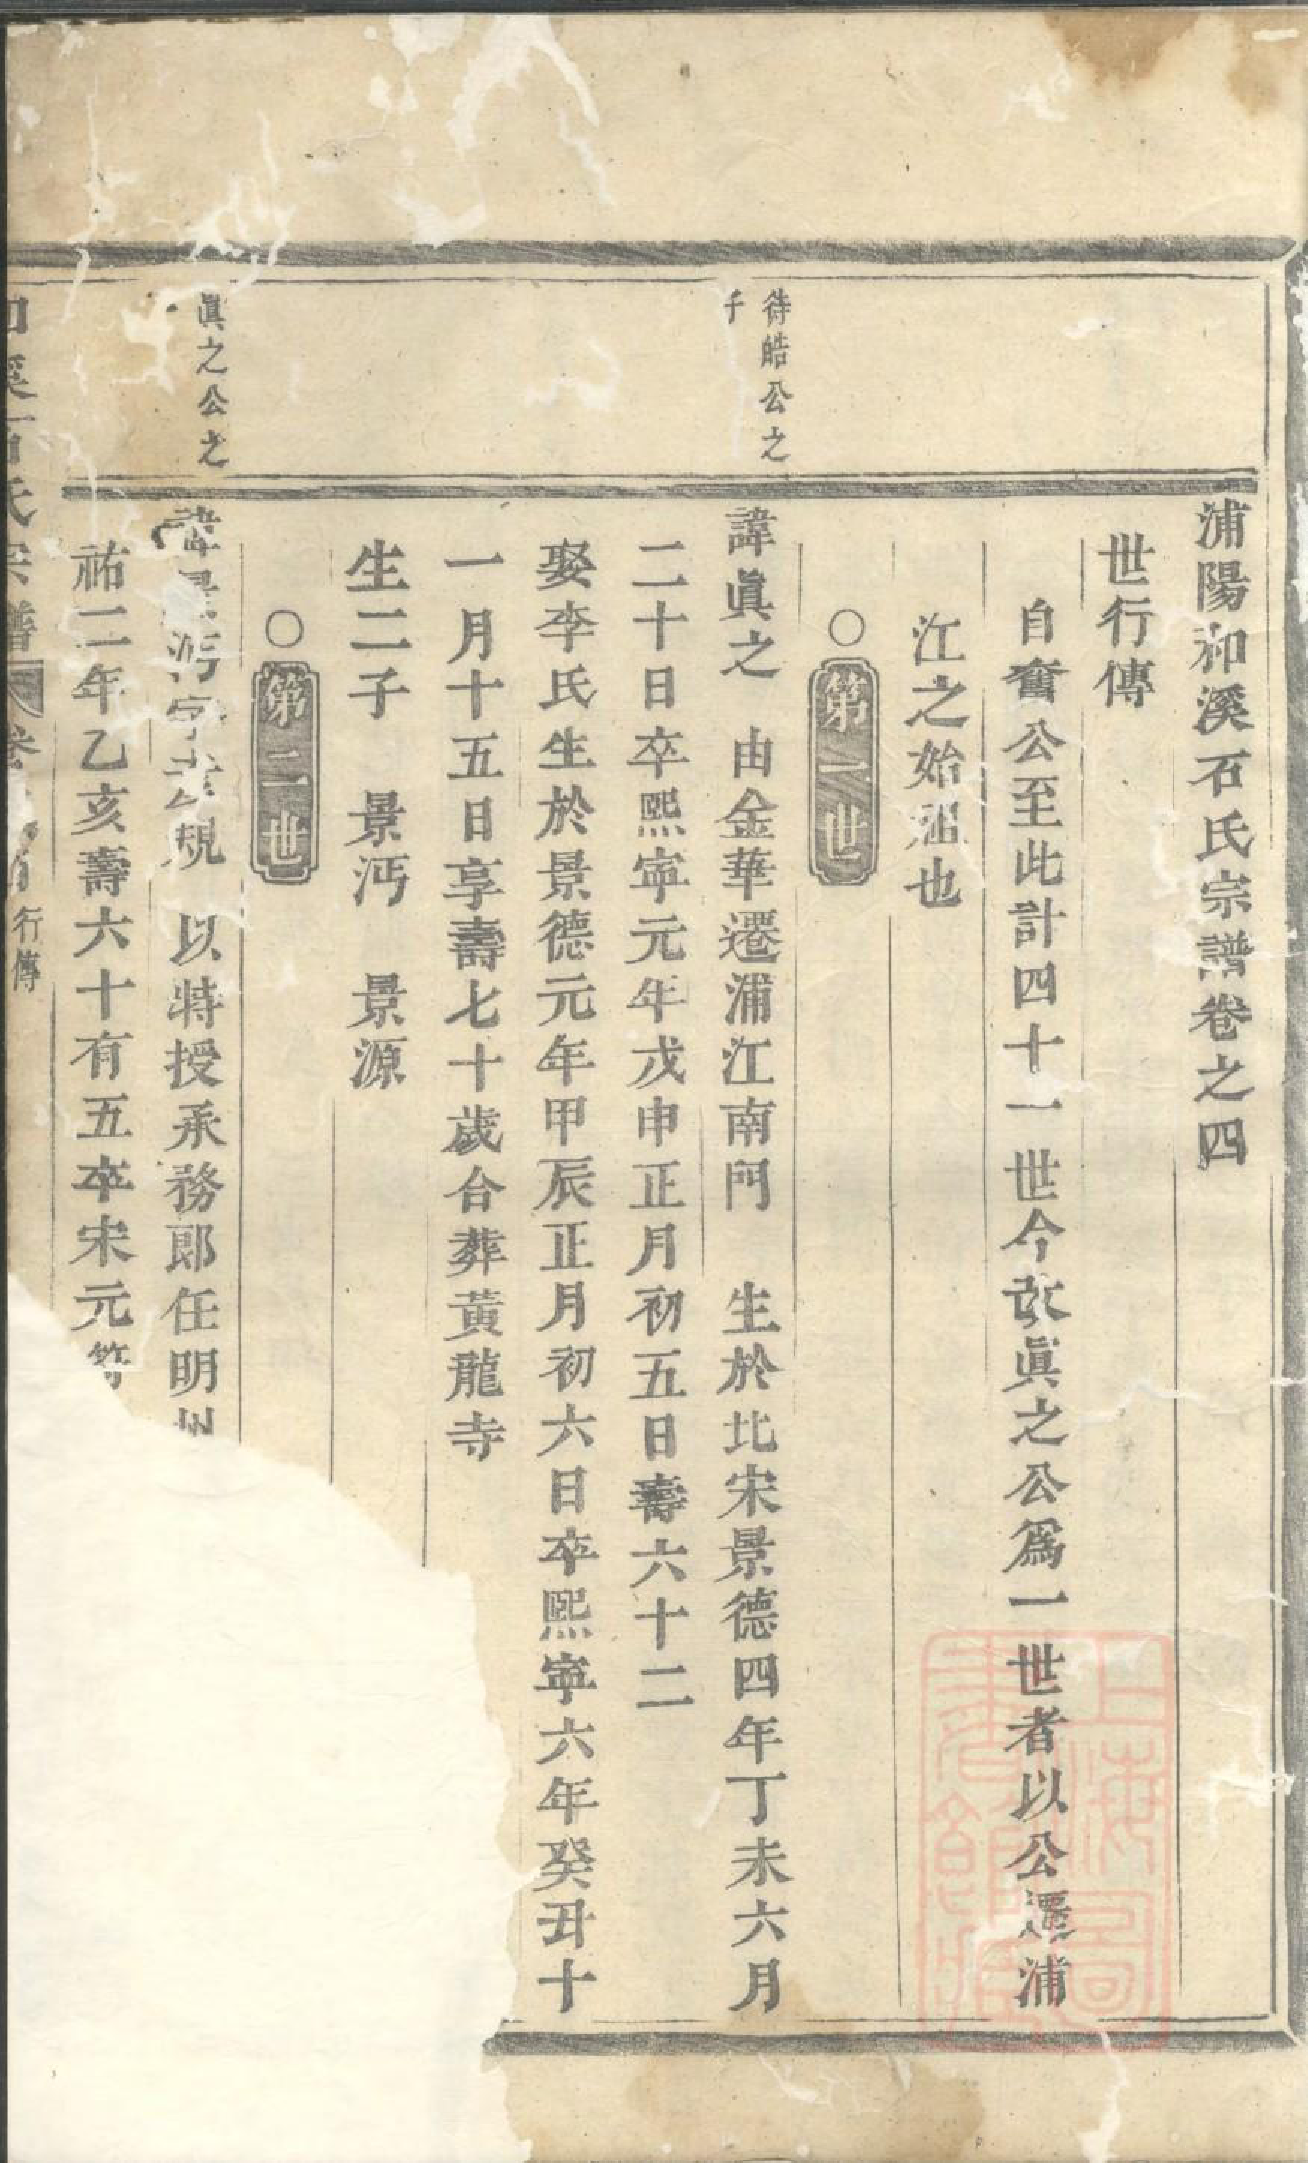 浦陽和溪石氏宗譜卷之四
世行傳
自奮公至此計四十一世今改眞之公爲一世者以公遷浦
江之始祖也
○第一世
待皓公之
子
諱眞之 由金華遷浦江南門 生於北宋景德四年丁未六月
二十日卒熙寧元年戊申正月初五日壽六十二
娶李氏生於景德元年甲辰正月初六日卒熙寧六年癸丑十
一月十五日享壽七十歲合葬黃龍寺
生二子 景沔 景源
○第二世
眞之公之
諱景沔字 規 以特授承務郎任明州
祐二年乙亥壽六十有五卒宋元符
和溪石氏宗譜 卷 行傳